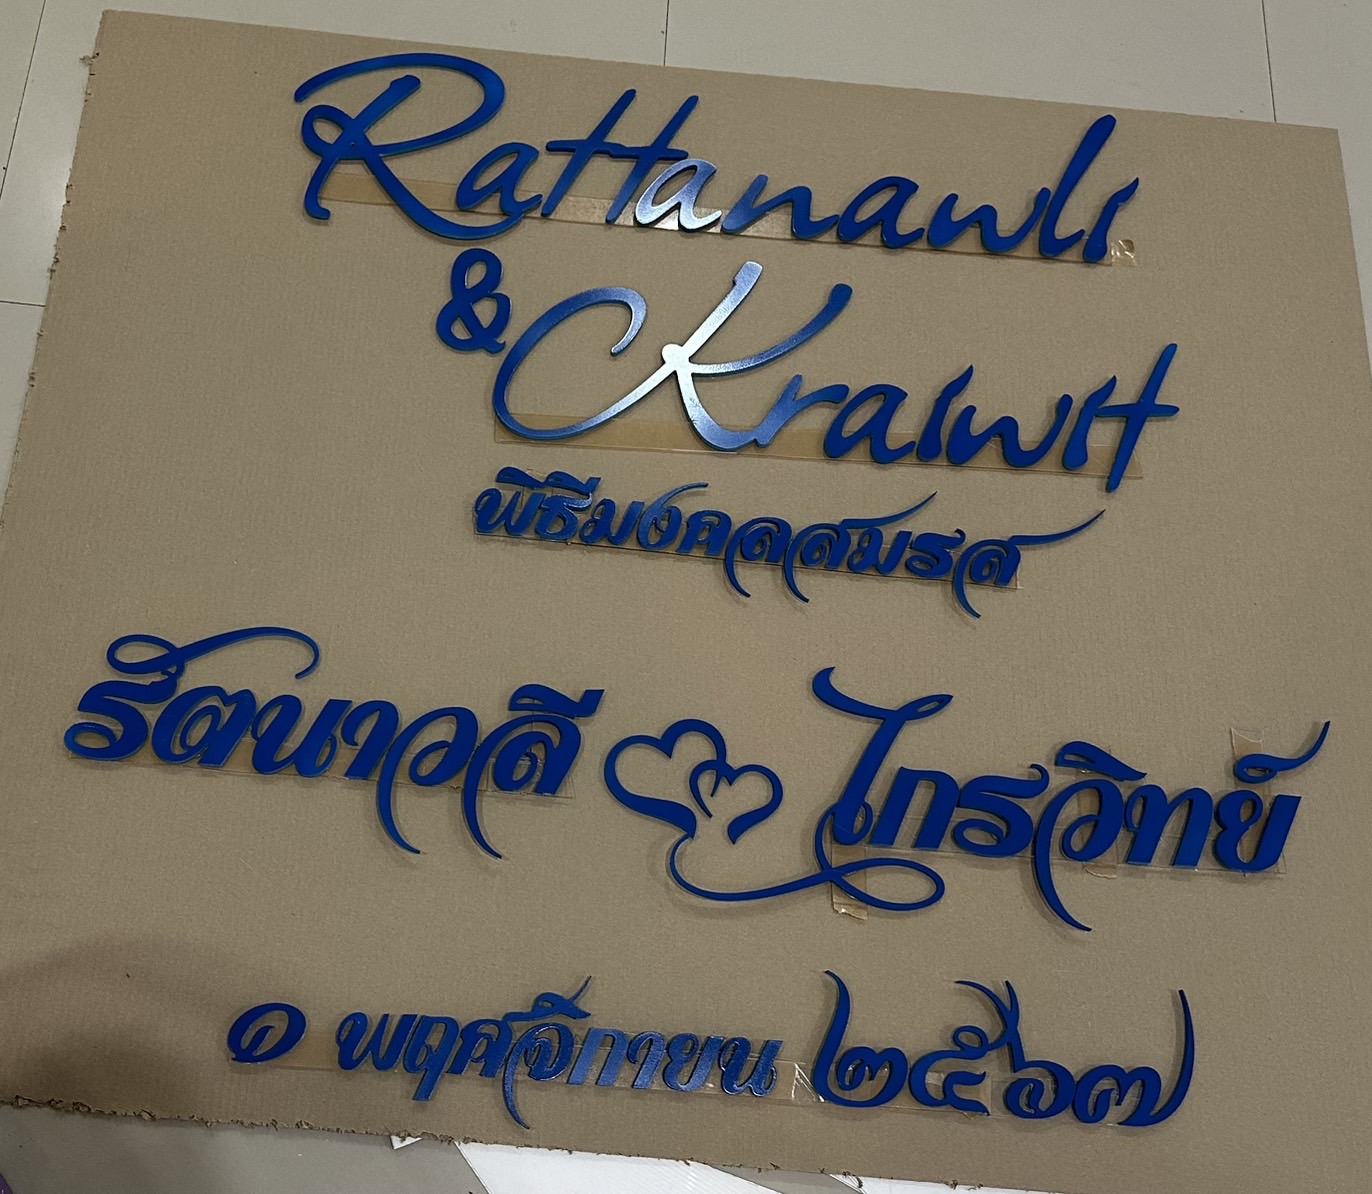 Rattanawli
& Kraiwit
พิธีมงคลสมรส
รัตนาวลี ไกรวิทย์
๑ พฤศจิกายน ๒๕๖๗